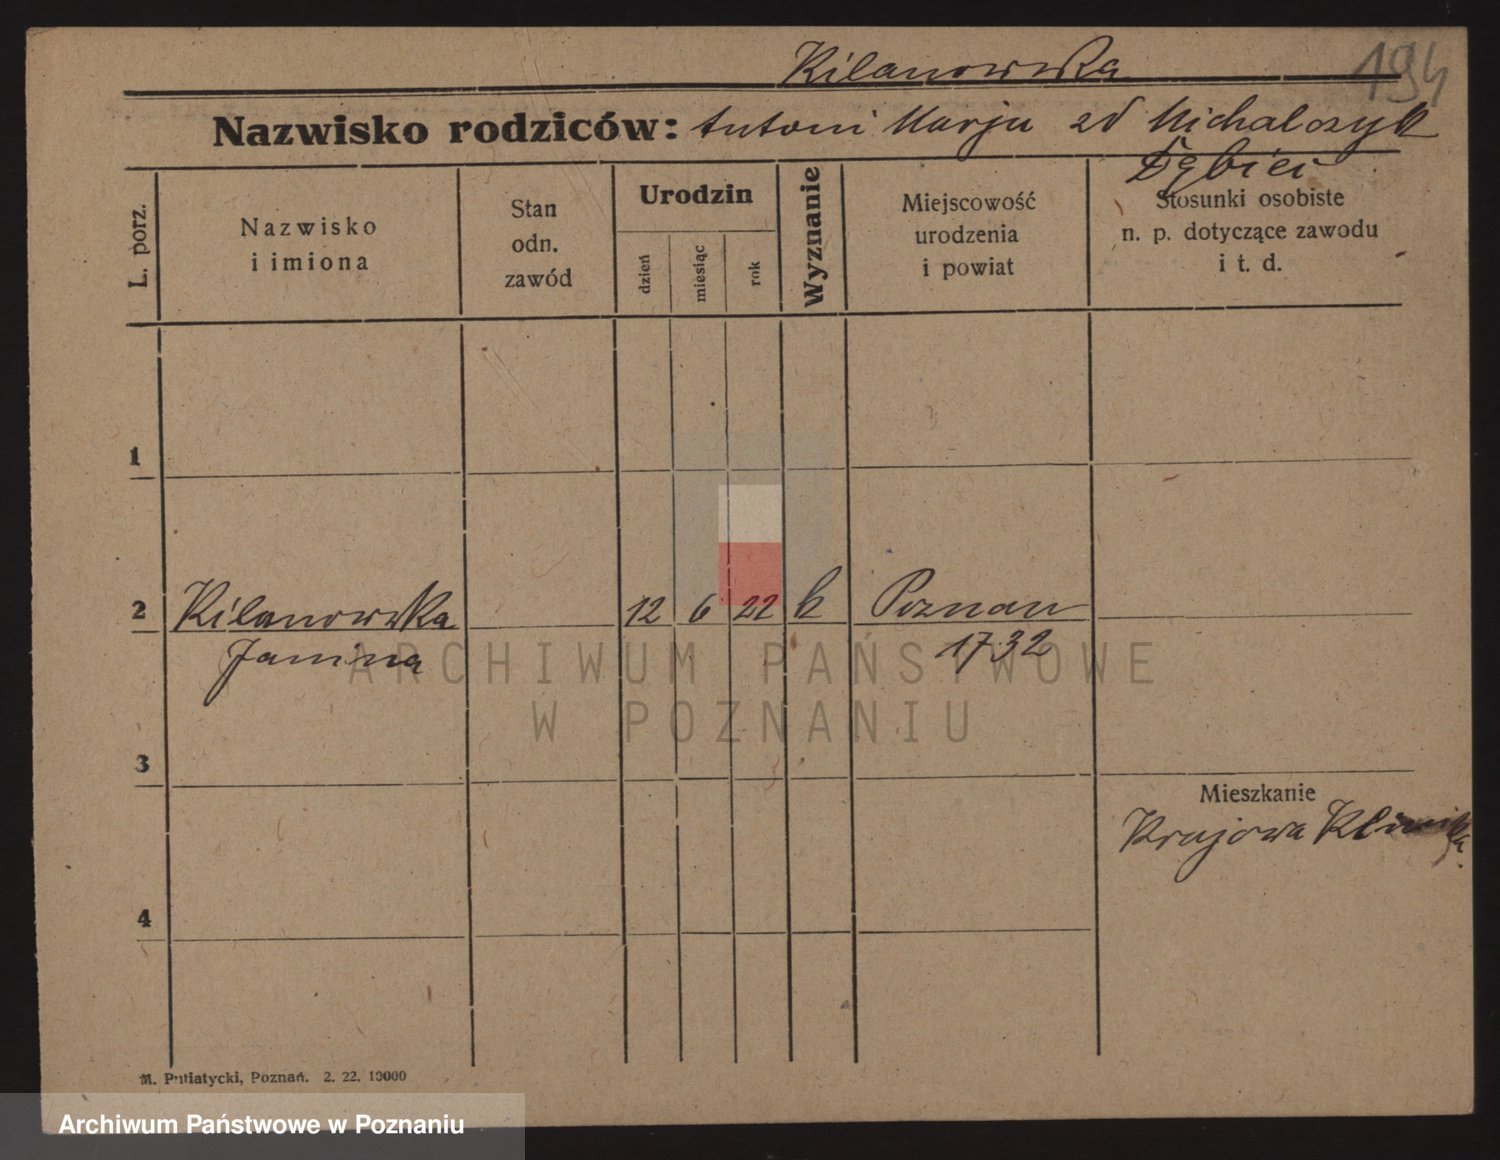 Kilanowska
194
Nazwisko rodziców: Antoni Marja zd Michalczyk
Dębiec
L. porz.
Nazwisko
i imiona
Stan
odn.
zawód
Urodzin
dzień
miesiąc
rok
Wyznanie
Miejscowość
urodzenia
i powiat
Stosunki osobiste
n. p. dotyczące zawodu
i t. d.
1
2 Kilanowska 12 6 22 k Poznan
Janina 1732
ARCHIWUM PAŃSTWOWE
W POZNANIU
3
Mieszkanie
Krajowa Klinika.
4
M. Putiatycki, Poznań. 2. 22. 10000
Archiwum Państwowe w Poznaniu